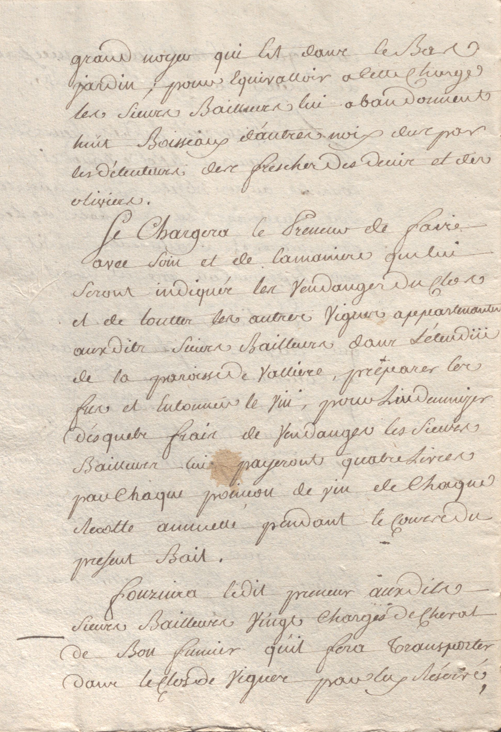 grand noyer qui Est dans le Bas
jardin, pour Equivalloir a Cette Charge
les sieurs Bailleurs lui abandonnent
huit Boisseaux d'autres noix dus par
les détenteurs des fresches des deuir et des
oliviers.
Se Chargera le Preneur de faire
avec soin et de la maniere qui lui
seront indiquée les Vendanges du Clos
et de toutes les autres Vignes appartenantes
auxdits sieurs Bailleurs dans L'étendüe
de la paroisse de Valliere, préparer les
fus et Entonner le Vin, pour L'indemnizer
desquels frais de Vendanges les Sieurs
Bailleurs lui payeront quatre Livres
par Chaque poinçon de vin de Chaque
Récolte annuelle pendant le Cours du
présent Bail.
fournira ledit preneur auxdits
Sieurs Bailleurs Vingt Charges de Cheval
de Bon fumier qu'il fera Transporter
dans le Clos de Vignes par Eux Réservé,